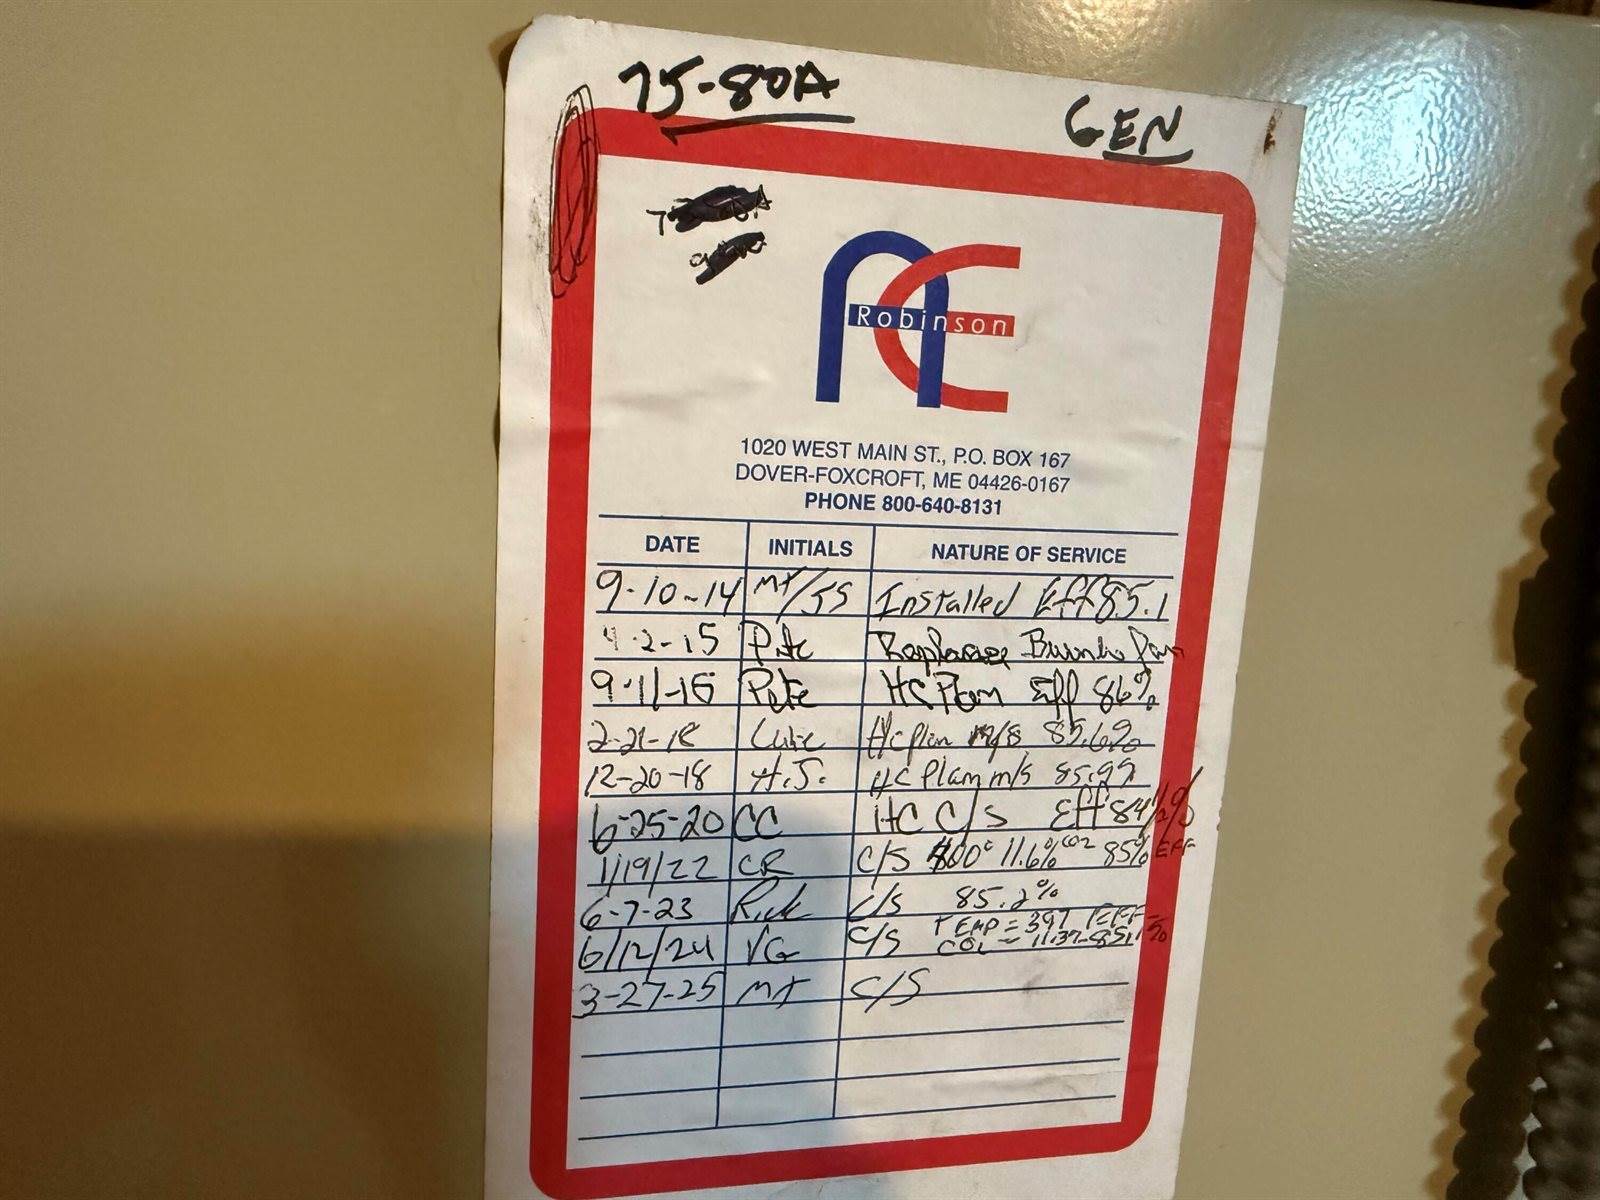 75-80A
GEN
ACE
Robinson
1020 WEST MAIN ST., P.O. BOX 167
DOVER-FOXCROFT, ME 04426-0167
PHONE 800-640-8131
DATE INITIALS NATURE OF SERVICE
9-10-14 MT/JS Installed Eff 85.1
4-2-15 Pete
Pete HC Plan Eff 86%
HC plan m/s 85.6%
12-20-18 H.J. HC Plan m/s 85.99
6-25-20 CC HC C/S Eff 84 1/2%
1/19/22 CR C/S 11.6% CO2 85% EFF
6-7-23 Rick C/S 85.2%
6/12/24 VG C/S TEMP = 397 EFF
3-27-25 MT C/S